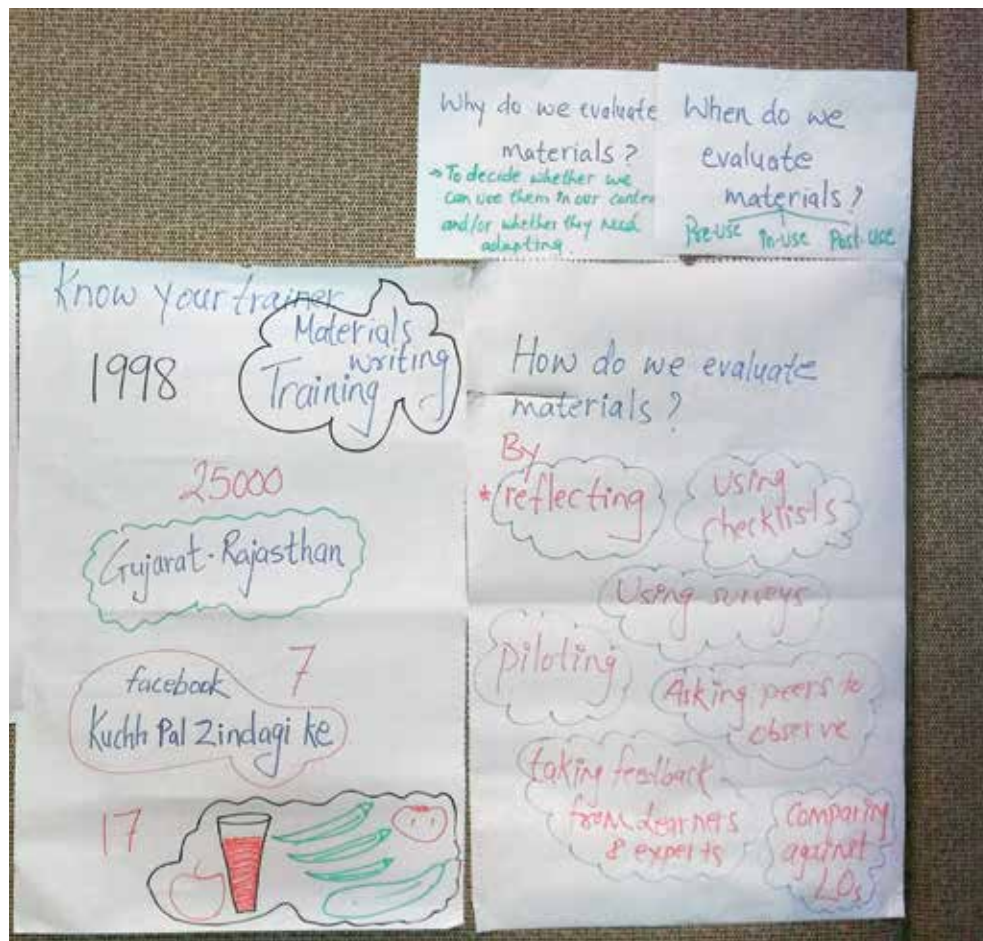 Why do we evaluate
materials?
→ To decide whether we
can use them in our
and/or whether they need
adapting.
When do we
evaluate
materials?
Pre-use In-use Post-use
Know your trainer
1998
Materials
writing
Training
25000
Gujarat - Rajasthan
7
facebook
Kuchh Pal Zindagi ke
17
How do we evaluate
materials?
By
* reflecting
Using
checklists
Using surveys
piloting
Asking peers to
observe
taking feedback
from Learners
& experts
Comparing
against
LOs